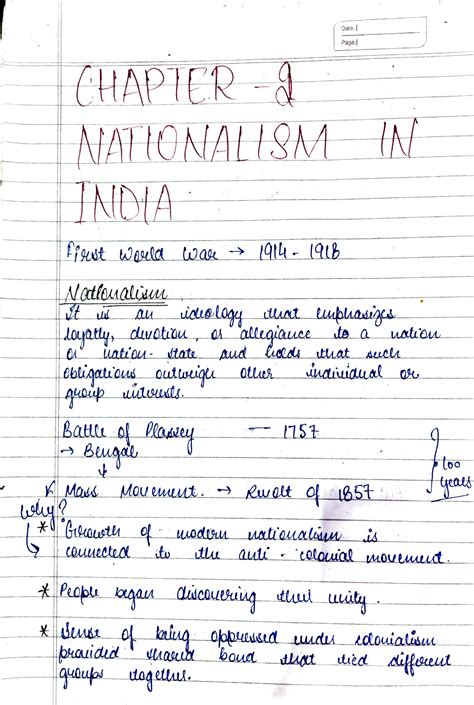 Date.
Page.
CHAPTER - 2
NATIONALISM IN
INDIA
First World War → 1914 - 1918
Nationalism
It is an ideology that emphasizes
loyalty, devotion, or allegiance to a nation
or nation-state and holds that such
obligations outweigh other individual or
group interests.
Battle of Plassey — 1757
→ Bengal
100
years
Mass Movement. → Revolt of 1857
Why?
* Growth of modern nationalism is
connected to the anti-colonial movement.
* People began discovering their unity.
* Sense of being oppressed under colonialism
provided shared bond that tied different
groups together.